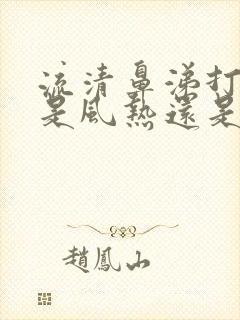 流清鼻涕打
是風熱還是
趙鳳山